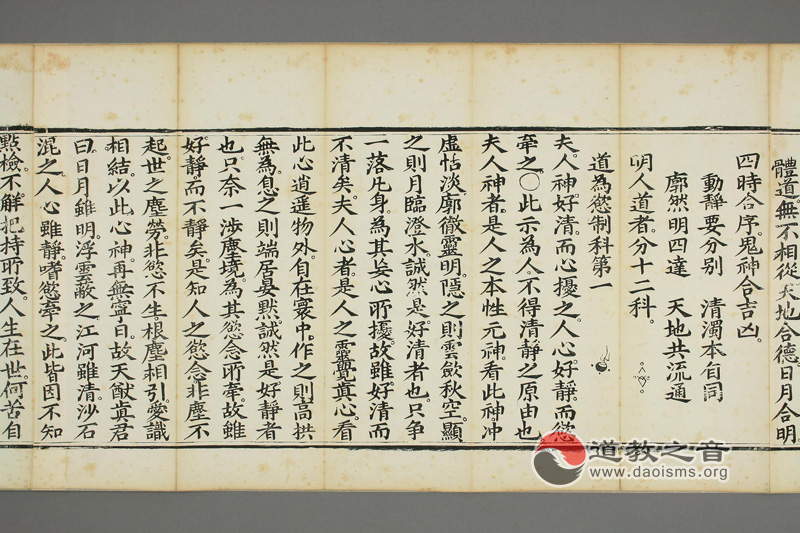 體道。無不相從。天地合德。日月合明。
四時合序。鬼神合吉凶。
動靜要分別　清濁本自同
廓然明四達　天地共流通
明人道者。分十二科。
道為慾制科第一
夫。人神好清。而心擾之。人心好靜。而慾
牽之。〇此示為人。不得清靜之原由也。
夫人神者。是人之本性元神。看此神。冲
虛恬淡。廓徹靈明。隱之則雲歛秋空。顯
之則月臨澄水。誠然是好清者也。只爭
一落凡身。為其妄心所擾。故雖好清而
不清矣。夫人心者。是人之靈覺真心。看
此心。逍遥物外。自在寰中。作之則高拱
無為。息之則端居晏默。誠然是好靜者
也。只奈一涉塵境。為其慾念所牽。故雖
好靜。而不靜矣。是知人之慾念。非塵不
起。世之塵勞。非慾不生。根塵相引。愛識
相結。以此心神。再無寧日。故天猷真君
曰。日月雖明。浮雲蔽之。江河雖清。沙石
混之。人心雖靜。嗜慾牽之。此皆因不知
點檢。不解把持所致。人生在世。何苦自
道教之音
www.daoisms.org